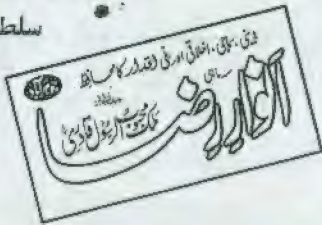 سلط
دینی، سماجی، اخلاقی اور ملی اقدار کا محافظ
سہ ماہی
انوارِ رضا
ملک محبوب الرسول قادری